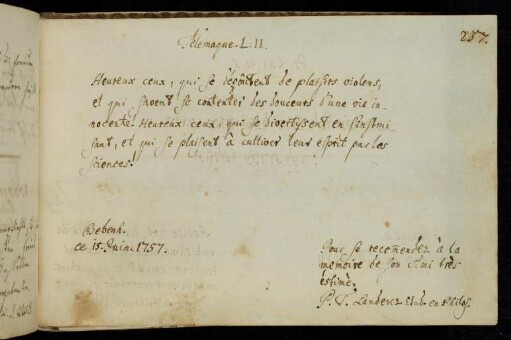 257.
Telemaque. L. II.
Heureux ceux, qui se degoûtent de plaisirs violens,
et qui savent se contenter des douceurs d'une vie in-
nocente! Heureux ceux, qui se divertissent en s'instrui-
sant, et qui se plaisent à cultiver leur esprit par les
sciences!
Bebenh.
ce 15. Juin. 1757.
Pour se recom̄ender à la
memoire de son Ami très
estimé,